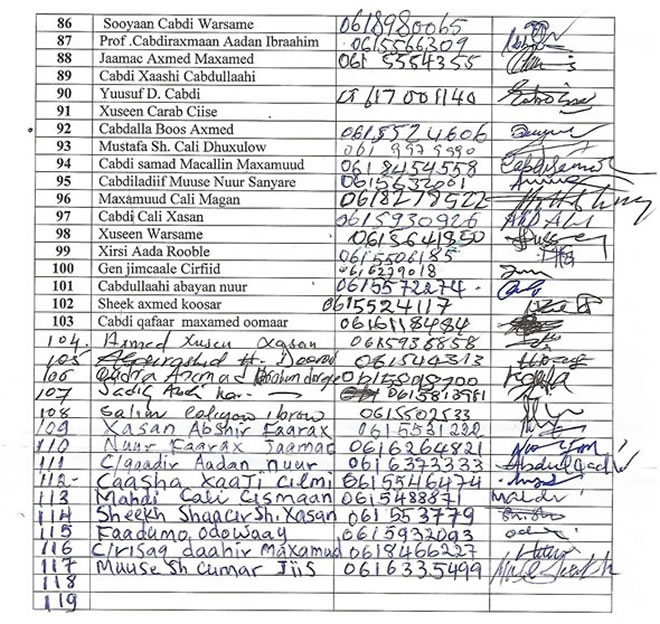 86 Sooyaan Cabdi Warsame 0618980065
87 Prof .Cabdiraxmaan Aadan Ibraahim 0615566309
88 Jaamac Axmed Maxamed 061 5554355
89 Cabdi Xaashi Cabdullaahi
90 Yuusuf D. Cabdi 0617001140
91 Xuseen Carab Ciise
92 Cabdalla Boos Axmed 0615524606
93 Mustafa Sh. Cali Dhuxulow 061 9979990
94 Cabdi samad Macallin Maxamuud 0618454558 Cabdisamad
95 Cabdiladiif Muuse Nuur Sanyare 0615632001
96 Maxamuud Cali Magan 0618279522
97 Cabdi Cali Xasan 0615930926
98 Xuseen Warsame 0615641850
99 Xirsi Aada Rooble 0615506185
100 Gen jimcaale Cirfiid 0616279018
101 Cabdullaahi abayan nuur 0615572274
102 Sheek axmed koosar 0615524117
103 Cabdi qafaar maxamed oomaar 0616118484
104. Axmed Xuseen Xasan 0615936858
105 061544313
106 0615098700
107 Sadiq 0615813981
108 Salim 0615502533
109 Xasan Abshir Faarax 0615531222
110 Nuur Faarax Jaamac 0616264821
111 C/qaadir Aadan nuur 0616373333 Abdulqadir
112- Caasha Xaaji Cilmi 0615546474
113 Mahdi Cali Cismaan 0615488871 Mahdi
114 Sheekh Shaacir Sh. Xasan 061 553779
115 Faadumo odowaay 0615932093
116 Cirisaq daahir Maxamud 0618466227
117 Muuse Sh cumar Jiis 0616335499
118
119